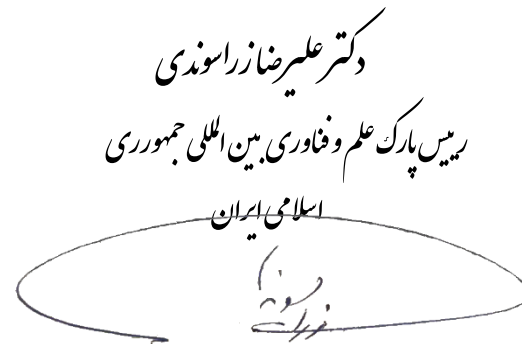 دکتر علیرضا زراسوندی
رییس پارک علم و فناوری بین المللی جمهوری
اسلامی ایران